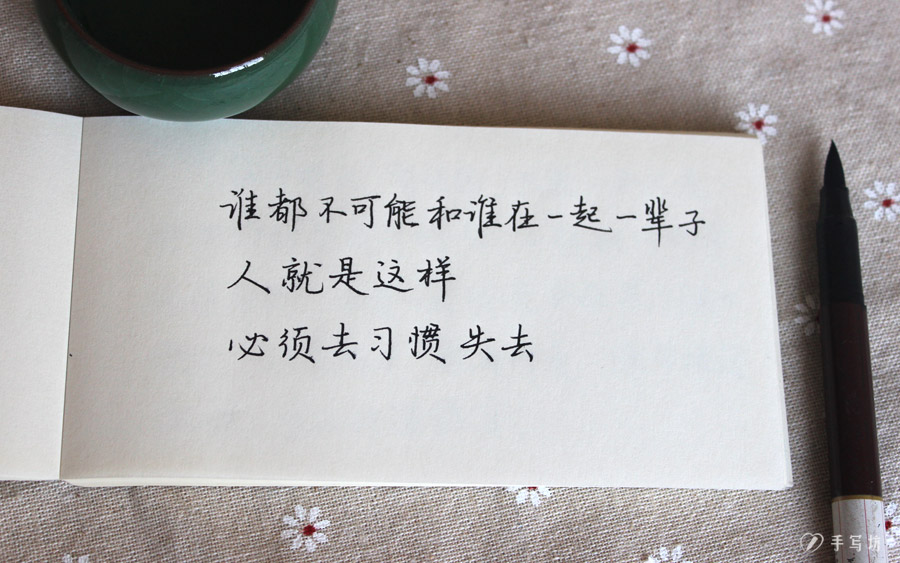 谁都不可能和谁在一起一辈子
人就是这样
必须去习惯失去
手写坊